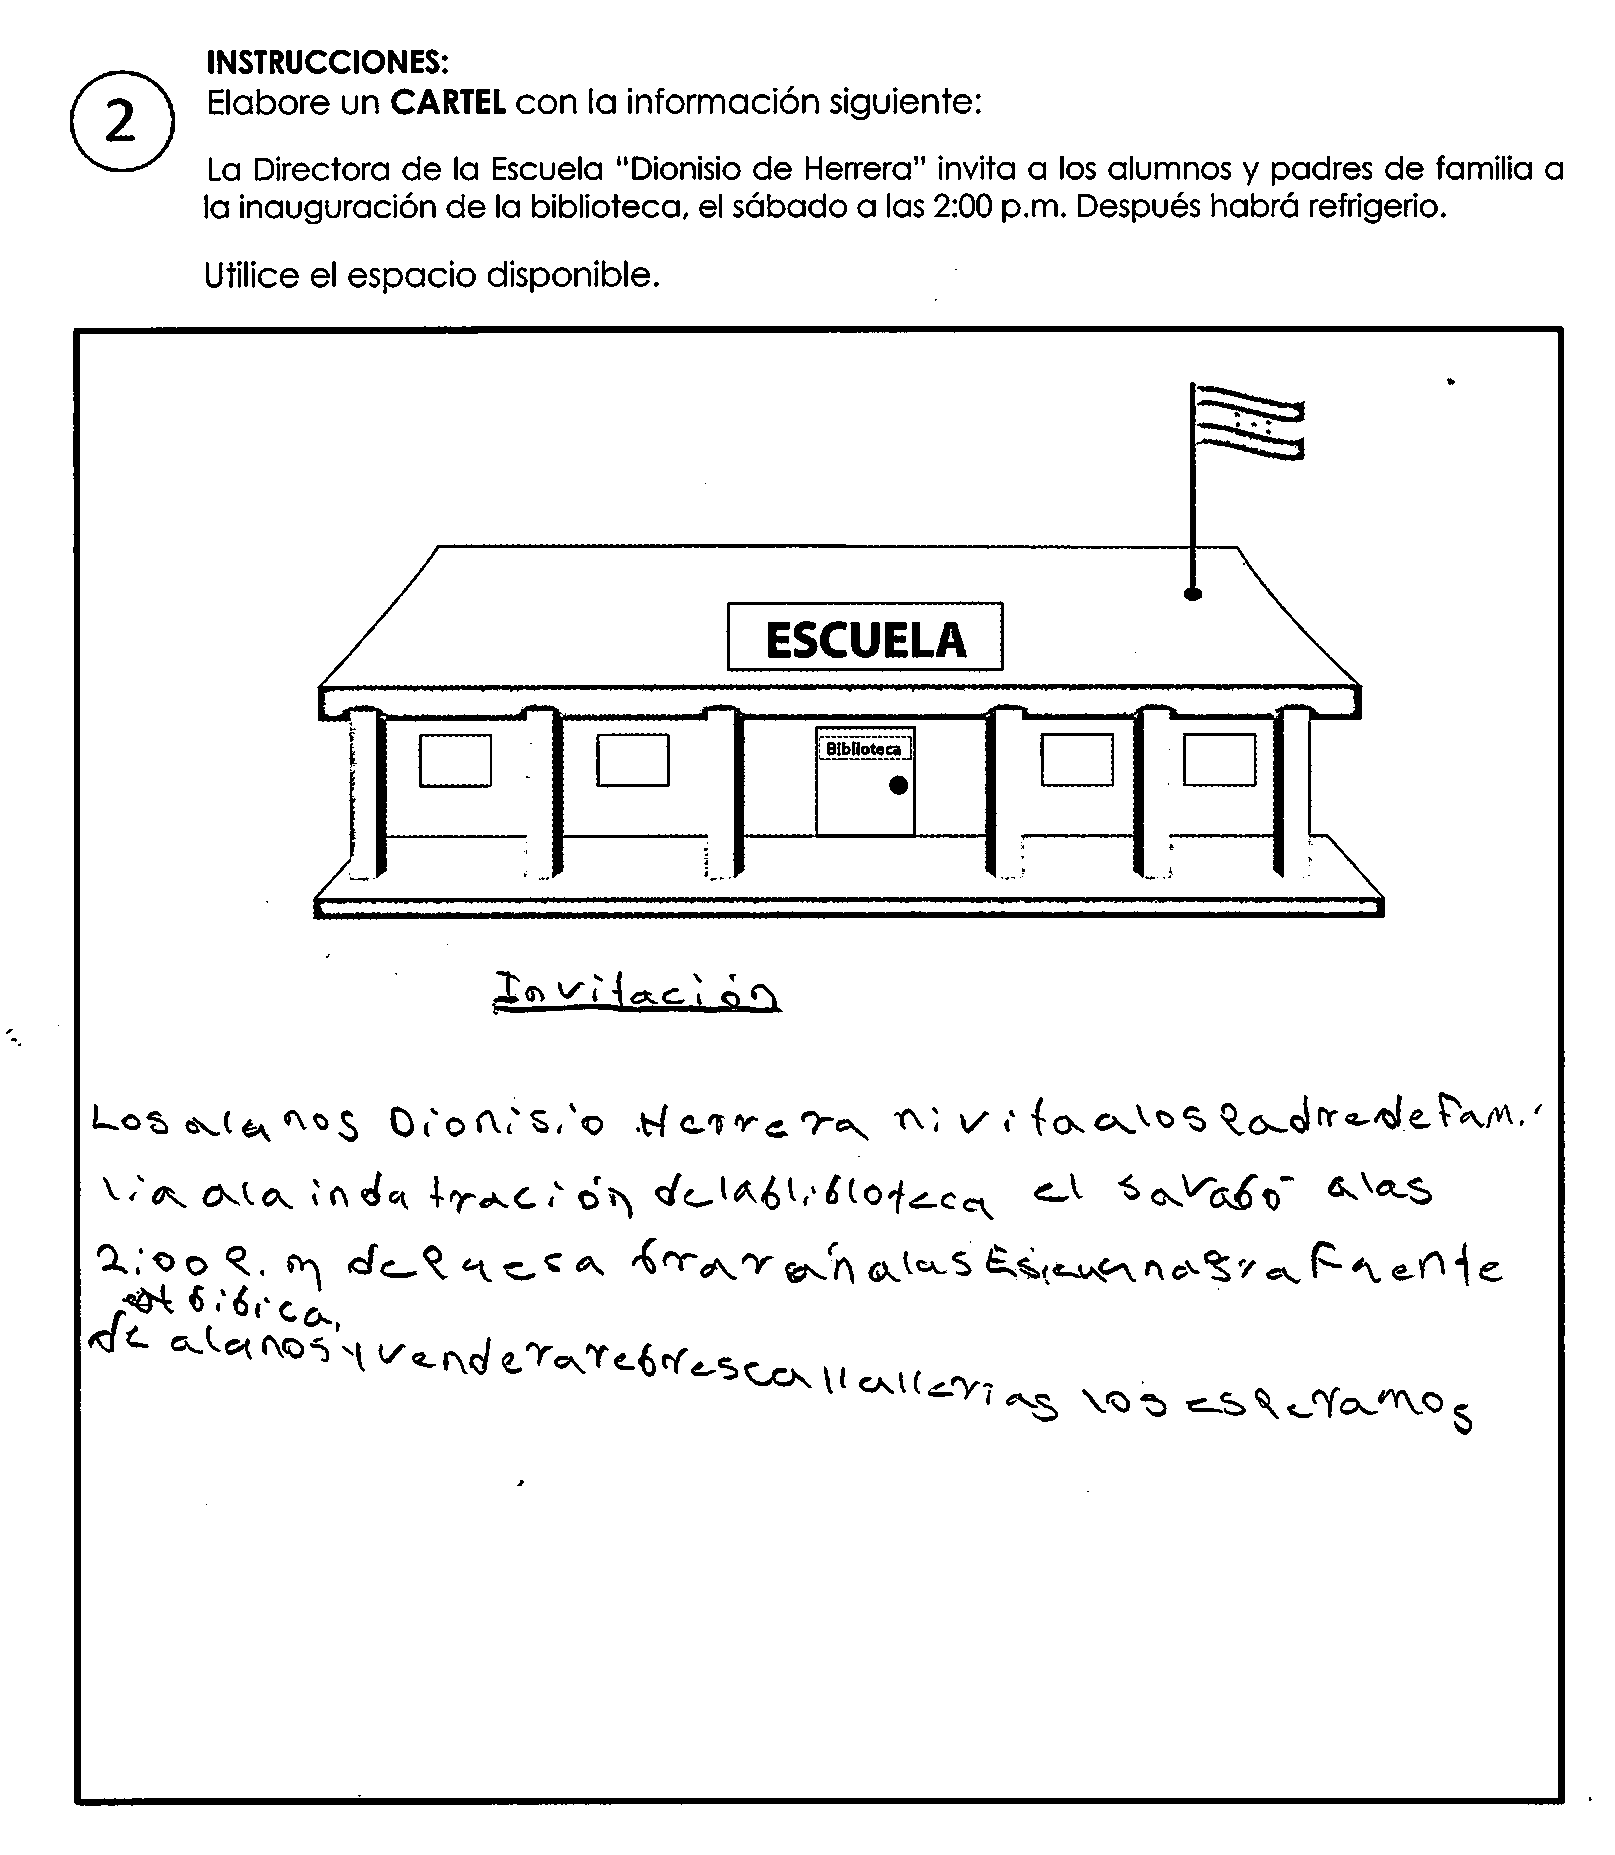 INSTRUCCIONES:
2
Elabore un CARTEL con la información siguiente:
La Directora de la Escuela "Dionisio de Herrera" invita a los alumnos y padres de familia a
la inauguración de la biblioteca, el sábado a las 2:00 p.m. Después habrá refrigerio.
Utilice el espacio disponible.
ESCUELA
Biblioteca
Invitación
Los alunos Dionisio Herrera nivita a los Padre de Fam.
lia a la inda tración de la bliblioteca el savabo a las
2:00 P.m de Puesa a las Fuente
bibica,
de alunos y vendera rebresca los esperamos